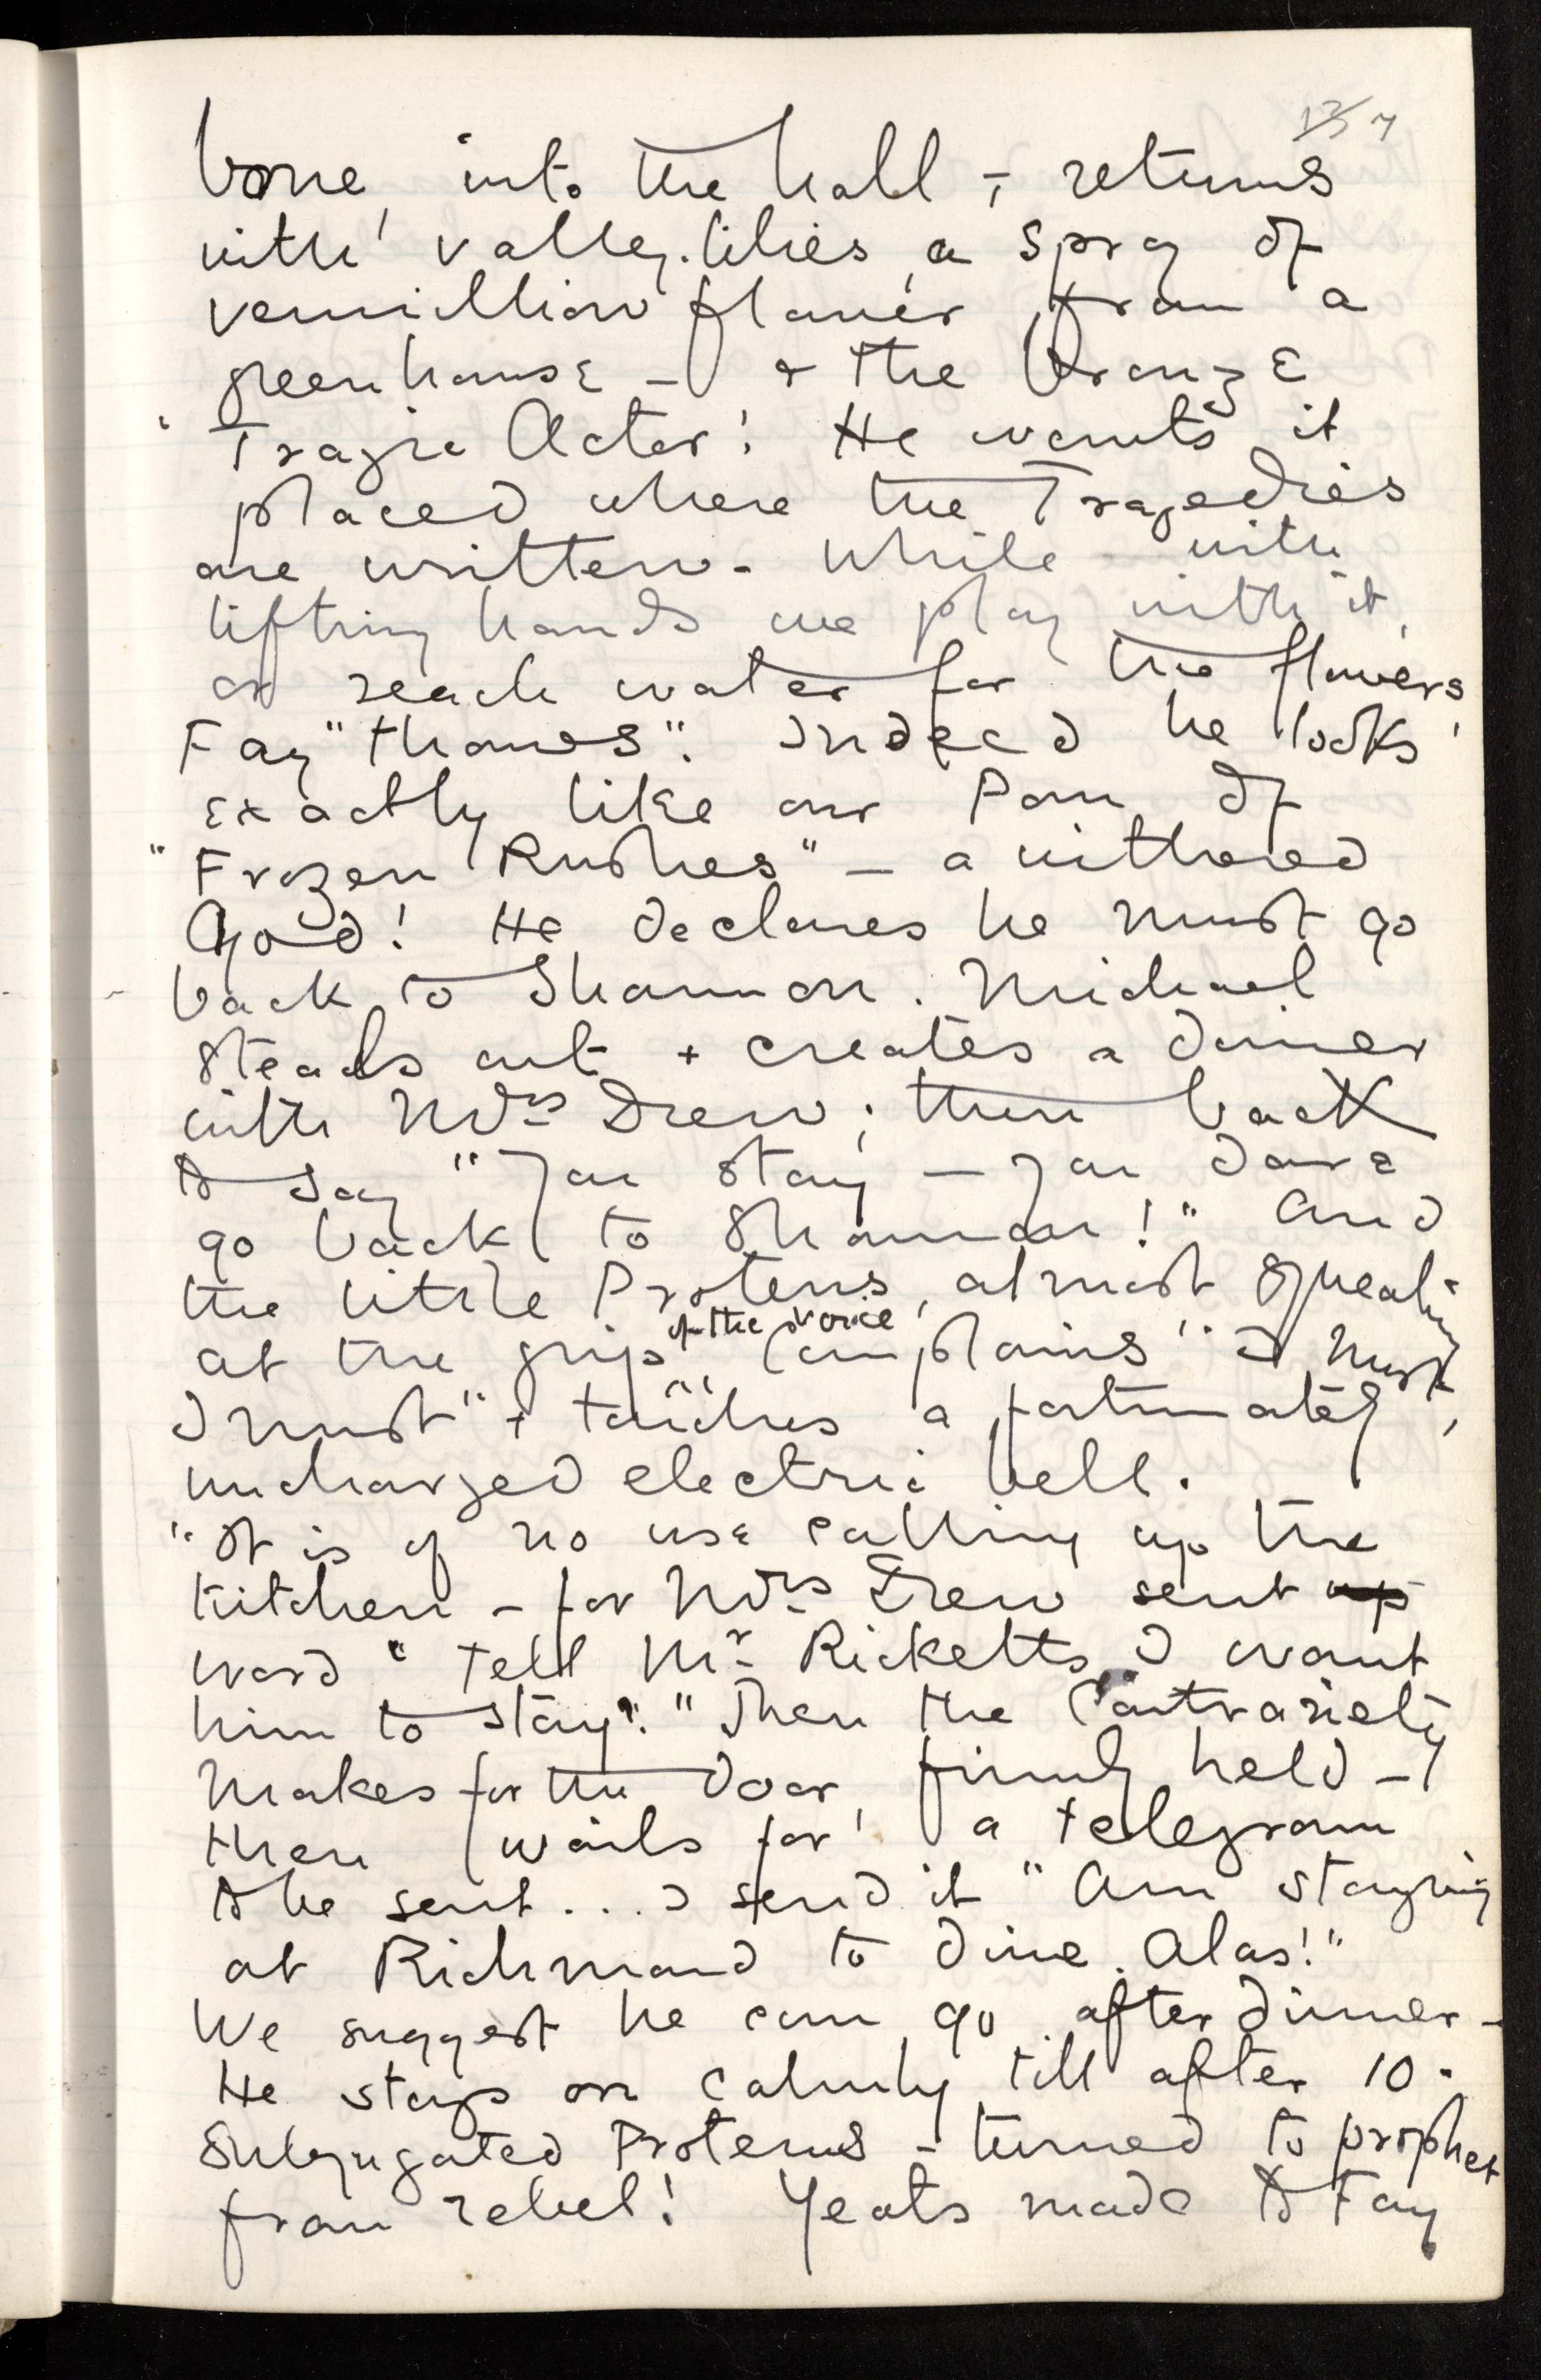 137
bone, into the hall – returns
with valley-lilies, a spray of
vermillion flower from a
greenhouse – & the bronze
'Tragic Actor'! He wants it
placed where the Tragedies
are written. While with
lifting hands we play with it,
or reach water for the flowers,
Fay "thaws". Indeed he looks
exactly like our Pan of
"Frozen Rushes" – a withered
God! He declares he must go
back to Shannon. Michael
steals out & creates a dinner
with Mrs Drew; then back
to say "You stay – you dare
go back to Shannon!" And
the little Proteus, almost squeaking
at the grip of the voice, complains "I must,
I must" & touches a fortunately
uncharged electric bell.
"It is of no use calling up the
kitchen – for Mrs Drew sent up
word "tell Mr Ricketts I want
him to stay"." Then the Contrariety
makes for the door, firmly held –
then wails for a telegram
to be sent... I send it "Am staying
at Richmond to dine. Alas!"
We suggest he can go after dinner –
He stays on calmly till after 10.
Subjugated Proteus – turned to prophet
from rebel! Yeats made to Fay